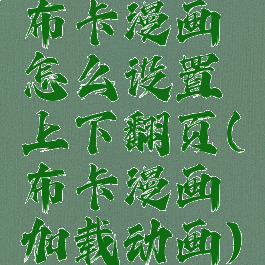 布卡漫画
怎么设置
上下翻页(
布卡漫画
加载动画)